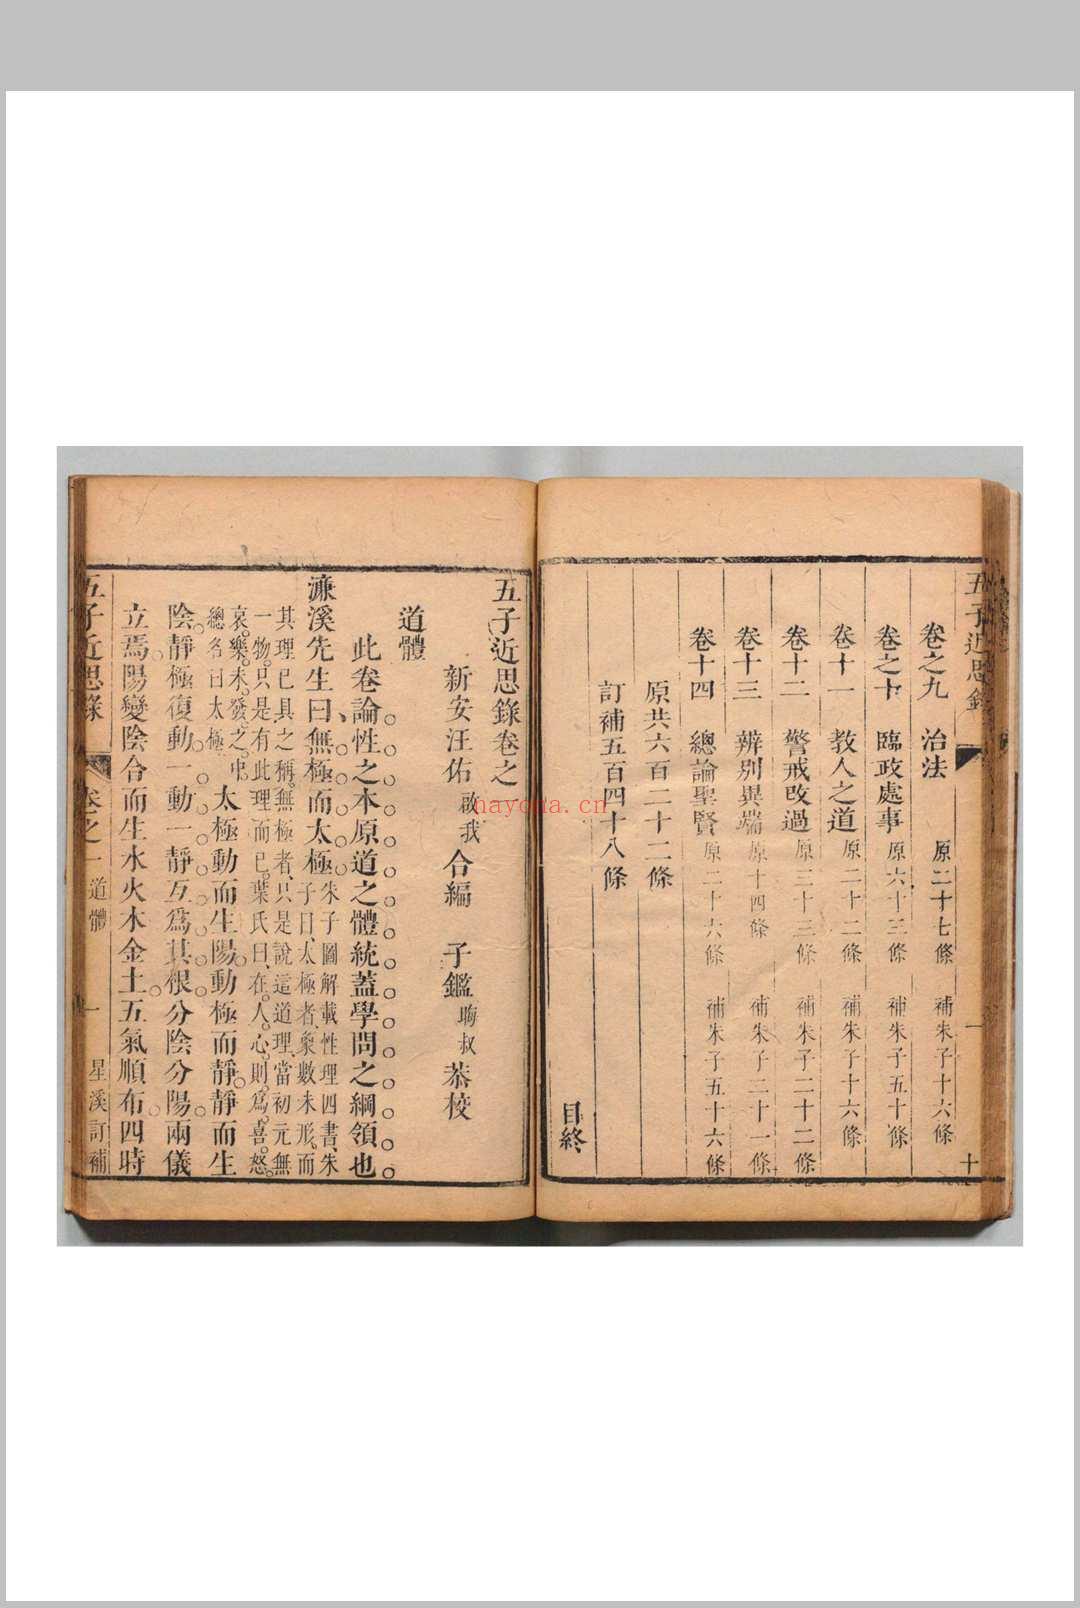 五子近思錄
卷之九　治法　原二十七條　補朱子十六條
卷之十　臨政處事　原六十三條　補朱子五十條
卷十一　教人之道　原二十二條　補朱子十六條
卷十二　警戒改過　原三十三條　補朱子二十二條
卷十三　辨別異端　原十四條　補朱子二十一條
卷十四　總論聖賢　原二十六條　補朱子五十六條
原共六百二十二條
訂補五百四十八條
目終
十
五子近思錄卷之
新安汪佑啟我合編　子鑑晦叔恭校
道體
此卷論性之本原道之體統蓋學問之綱領也
濂溪先生曰無極而太極朱子圖解載性理四書朱
子曰太極者象數未形而
其理已具之稱無極者只是說這道理當初元無
一物只是有此理而已葉氏曰在人心則為喜怒
哀樂未發之中
總名曰太極
太極動而生陽動極而靜靜而生
陰靜極復動一動一靜互爲其根分陰分陽兩儀
立焉陽變陰合而生水火木金土五氣順布四時
五子近思錄　卷之一　道體　一　星溪訂補
nayona.cn